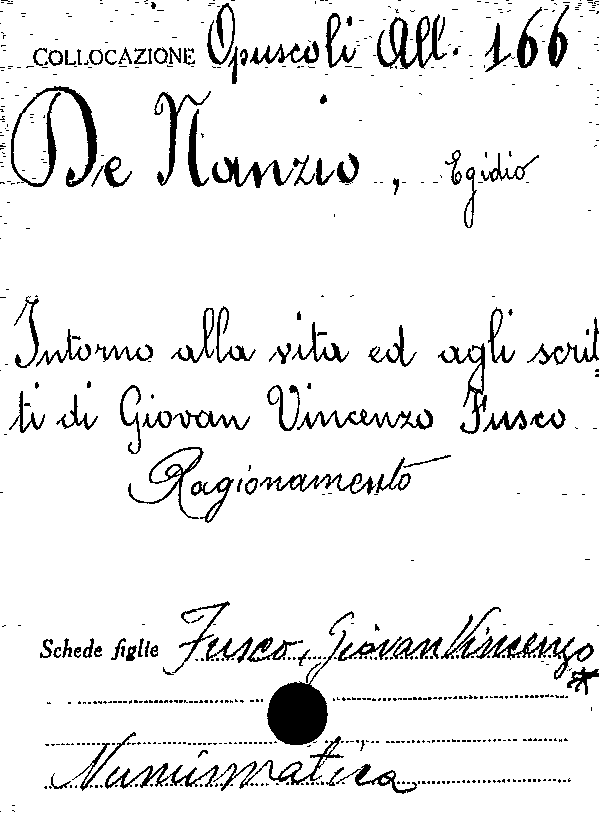 COLLOCAZIONE Opuscoli All. 166
De Nanzio, Egidio
Intorno alla vita ed agli scrit=
ti di Giovan Vincenzo Fusco
Ragionamento
Schede figlie Fusco, Giovan Vincenzo
*
Numismatica